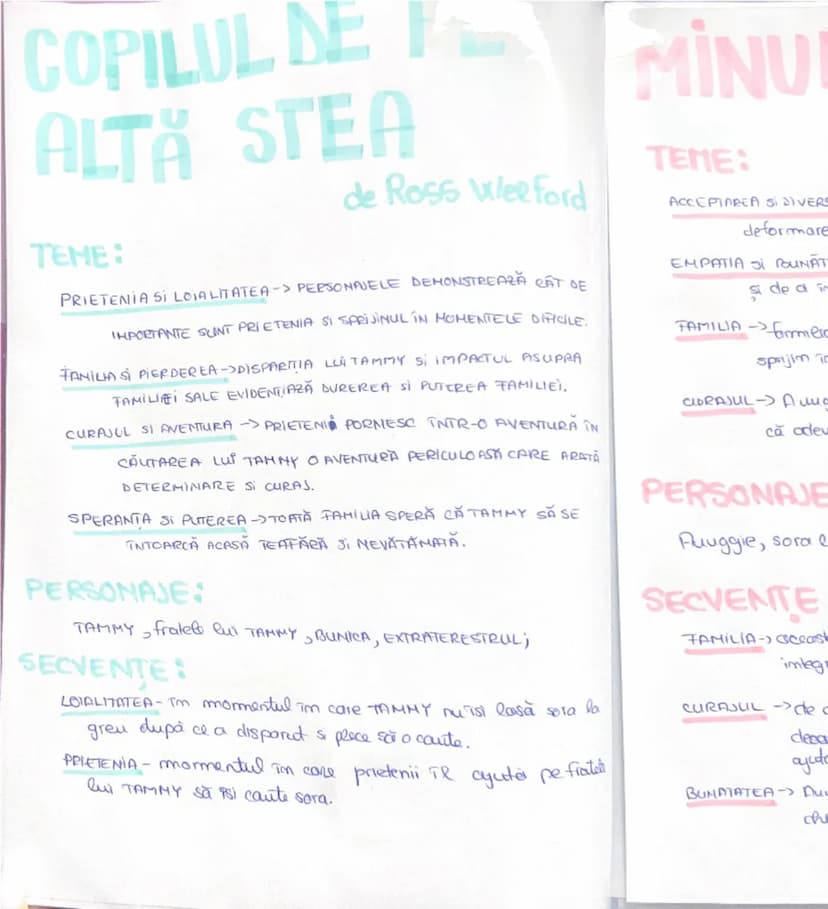 COPILUL DE PE
ALTĂ STEA
de Ross Weeford
TEME:
PRIETENIA SI LOIALITATEA -> PERSONAJELE DEMONSTREAZĂ CÂT DE
IMPORTANTE SUNT PRIETENIA SI SPRIJINUL ÎN MOMENTELE DIFICILE.
FAMILIA SI PIERDEREA -> DISPARIȚIA LUI TAMMY SI IMPACTUL ASUPRA
FAMILIEI SALE EVIDENȚIAZĂ DUREREA SI PUTEREA FAMILIEI.
CURAJUL SI AVENTURA -> PRIETENII PORNESC ÎNTR-O AVENTURĂ ÎN
CĂUTAREA LUI TAMMY O AVENTURĂ PERICULOASĂ CARE ARATĂ
DETERMINARE SI CURAJ.
SPERANȚA SI PUTEREA -> TOATĂ FAMILIA SPERĂ CĂ TAMMY SĂ SE
ÎNTOARCĂ ACASĂ TEAFĂRĂ SI NEVĂTĂMATĂ.
PERSONAJE:
TAMMY, fratele lui TAMMY, BUNICA, EXTRATERESTRUL;
SECVENȚE:
LOIALITATEA - în momentul în care TAMMY nu își lasă sora la
greu după ce a disparut si plece să o caute.
PRIETENIA - momentul în care prietenii îl ajută pe fratele
lui TAMMY să își caute sora.
MINU
TEME:
ACCEPTAREA SI DIVERS
deformare
EMPATIA SI BUNĂT
și de a în
FAMILIA ->
sprijin în
CURAJUL ->
că adev
PERSONAJE
sora
SECVENȚE
FAMILIA -> aceast
integr
CURAJUL -> de
ajuta
BUNATATEA ->